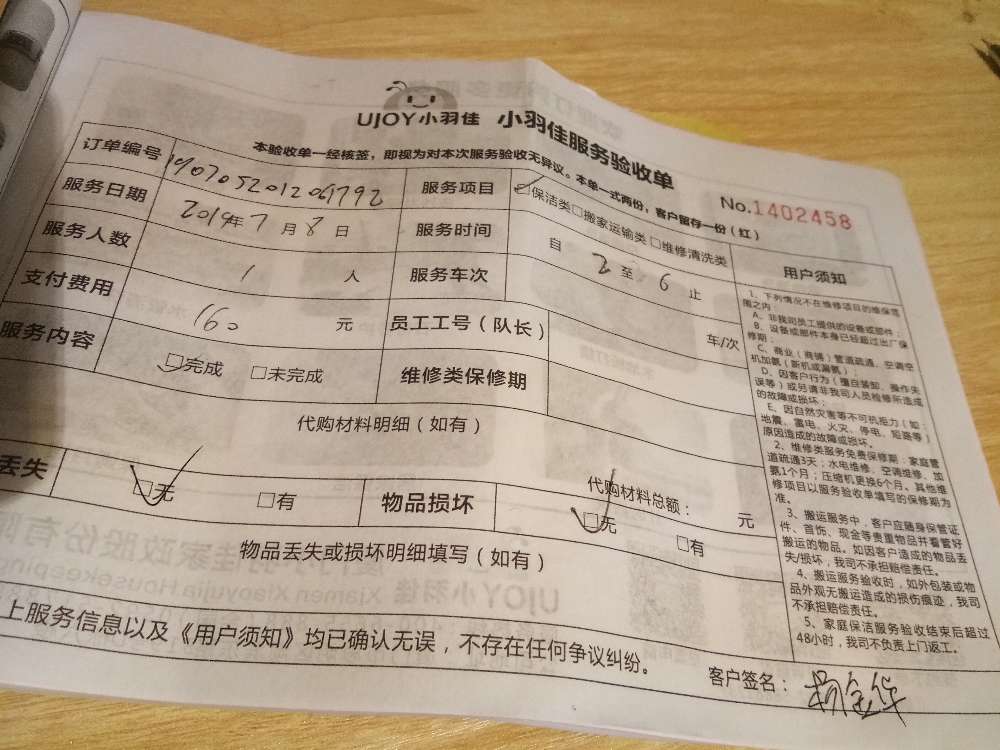 UJOY小羽佳 小羽佳服务验收单
本验收单一经核签，即视为对本次服务验收无异议。本单一式两份，客户留存一份（红）
No.1402458
订单编号
服务项目 保洁类 □搬家运输类 □维修清洗类
服务日期 2019年7月8日
服务时间 自 2 至 6 止
服务人数 1 人
服务车次 车/次
支付费用 160 元
员工工号（队长）
服务内容 □完成 □未完成
维修类保修期
代购材料明细（如有）
代购材料总额： 元
丢失 □无 □有
物品损坏 □无 □有
物品丢失或损坏明细填写（如有）
上服务信息以及《用户须知》均已确认无误，不存在任何争议纠纷。
客户签名：
用户须知
1、下列情况不在维修项目的维保范
围之内
A、非我司员工提供的设备或部件；
B、设备或部件本身已经超过出厂保
修期；
C、商业（商铺）管道疏通、空调空
机加氨（新机或漏氨）；
D、因客户行为（擅自装卸、操作失
误等）或另请非我司人员检修所造成
的故障或损坏；
E、因自然灾害等不可抗拒力（如：
地震、雷电、火灾、停电、短路等）
原因造成的故障或损坏。
2、维修类服务免费保修期：家庭管
道疏通3天；水电维修、空调维修、加
氨1个月；压缩机更换6个月。其他维
修项目以服务验收单填写的保修期为
准。
3、搬运服务中，客户应随身保管证
件、首饰、现金等贵重物品并看管好
搬运的物品。如因客户造成的物品丢
失/损坏，我司不承担赔偿责任。
4、搬运服务验收时，如外包装或物
品外观无搬运造成的损伤痕迹，我司
不承担赔偿责任。
5、家庭保洁服务验收结束后超过
48小时，我司不负责上门返工。